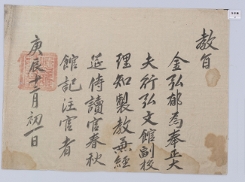 教旨
金弘郁為奉正大
夫行弘文館副校
理知製教兼經
筵侍讀官春秋
館記注官者
庚辰十二月初一日